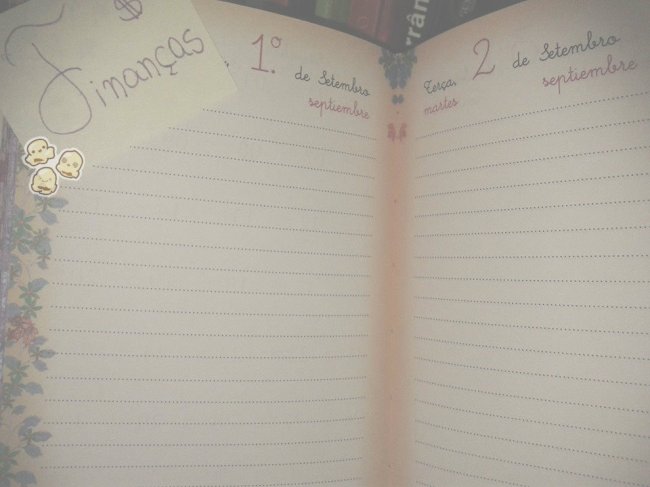 $
Finanças
1.º de Setembro
septiembre
Terça, 2 de Setembro
martes septiembre
rrân